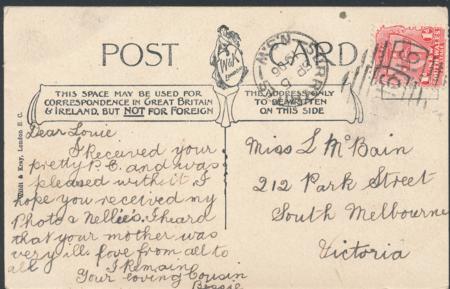 POST CARD
THIS SPACE MAY BE USED FOR
CORRESPONDENCE IN GREAT BRITAIN
& IRELAND, BUT NOT FOR FOREIGN
THE ADDRESS ONLY
TO BE WRITTEN
ON THIS SIDE
Kray, London E.C.
Dear Louie
I Received your
pretty P.C. and was
pleased with it I
hope you received my
Photo & Nellie's. I heard
that your mother was
very ill love from all to
all I Remain
Your loving Cousin
Bessie
Miss L McBain
212 Park Street
South Melbourne
Victoria